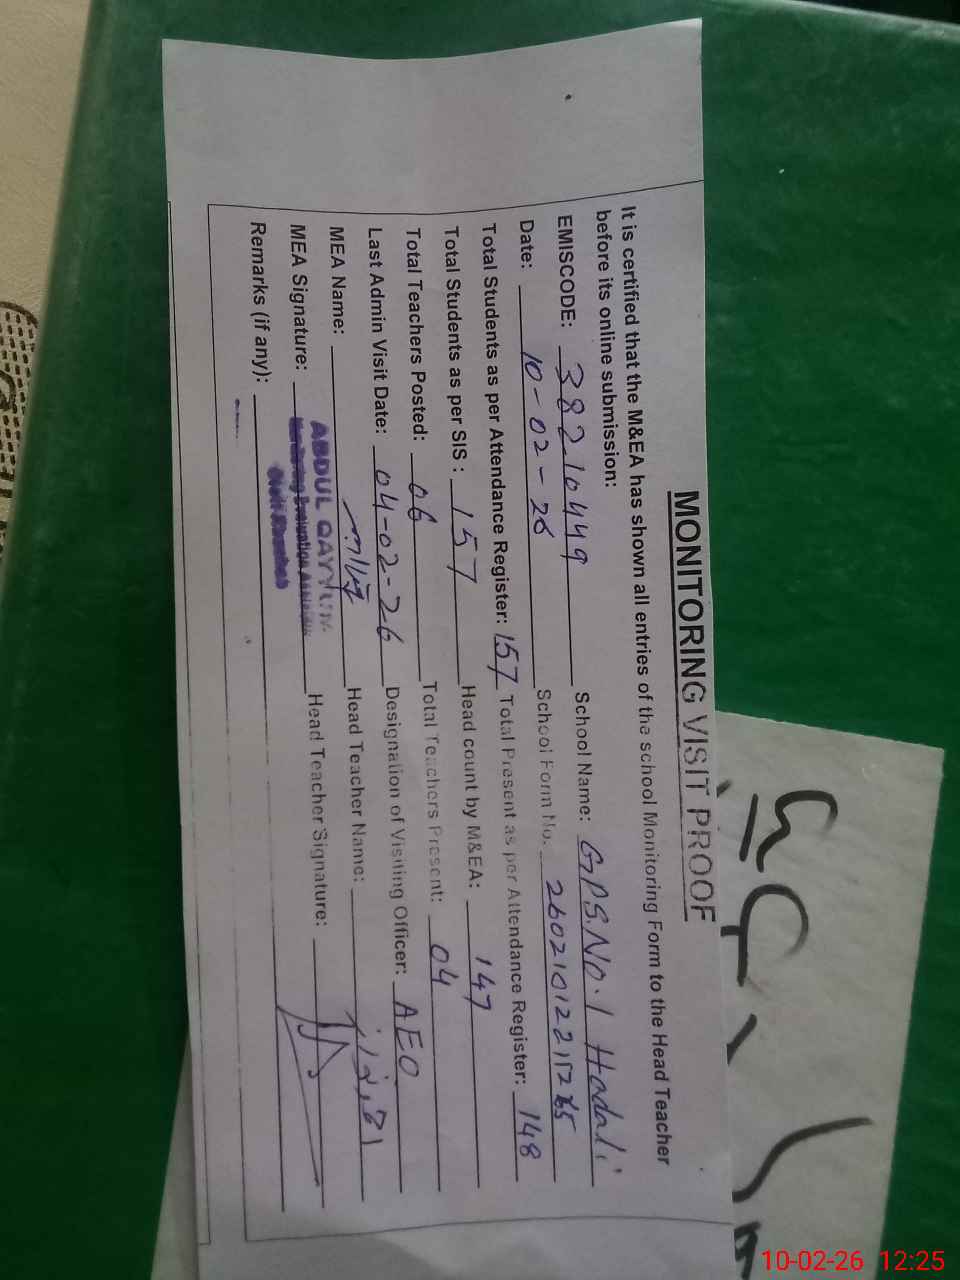 MONITORING VISIT PROOF
It is certified that the M&EA has shown all entries of the school Monitoring Form to the Head Teacher
before its online submission:
EMISCODE: 38210449 School Name: G.P.S. No. 1 Hadali
Date: 10-02-26 School Form No.
Total Students as per Attendance Register: 157 Total Present as per Attendance Register: 148
Total Students as per SIS: 157 Head count by M&EA: 147
Total Teachers Posted: 06 Total Teachers Present: 04
Last Admin Visit Date: 04-02-26 Designation of Visiting Officer: AEO
MEA Name: Head Teacher Name:
MEA Signature: ABDUL QAYYUM Head Teacher Signature:
Monitoring Evaluation Assistant
Distt: Khushab
Remarks (if any):
10-02-26 12:25